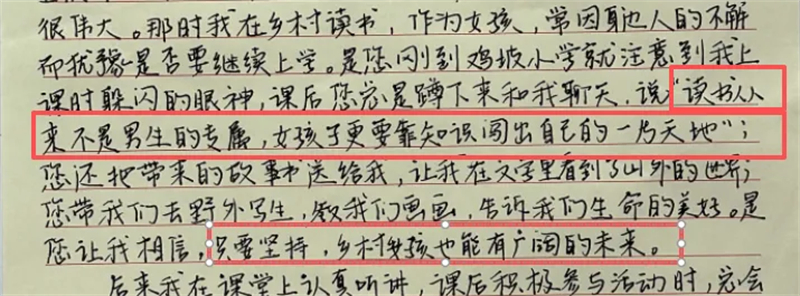 很伟大。那时我在乡村读书，作为女孩，常因身边人的不解
而犹豫是否要继续上学。是您刚到鸡坡小学就注意到我上
课时躲闪的眼神，课后您总是蹲下来和我聊天，说“读书从
来不是男生的专属，女孩子更要靠知识闯出自己的一片天地”；
您还把带来的故事书送给我，让我在文字里看到了山外的世界；
您带我们去野外写生，教我们画画，告诉我们生命的美好。是
您让我相信，只要坚持，乡村女孩也能有广阔的未来。
后来我在课堂上认真听讲，课后积极参与活动时，总会